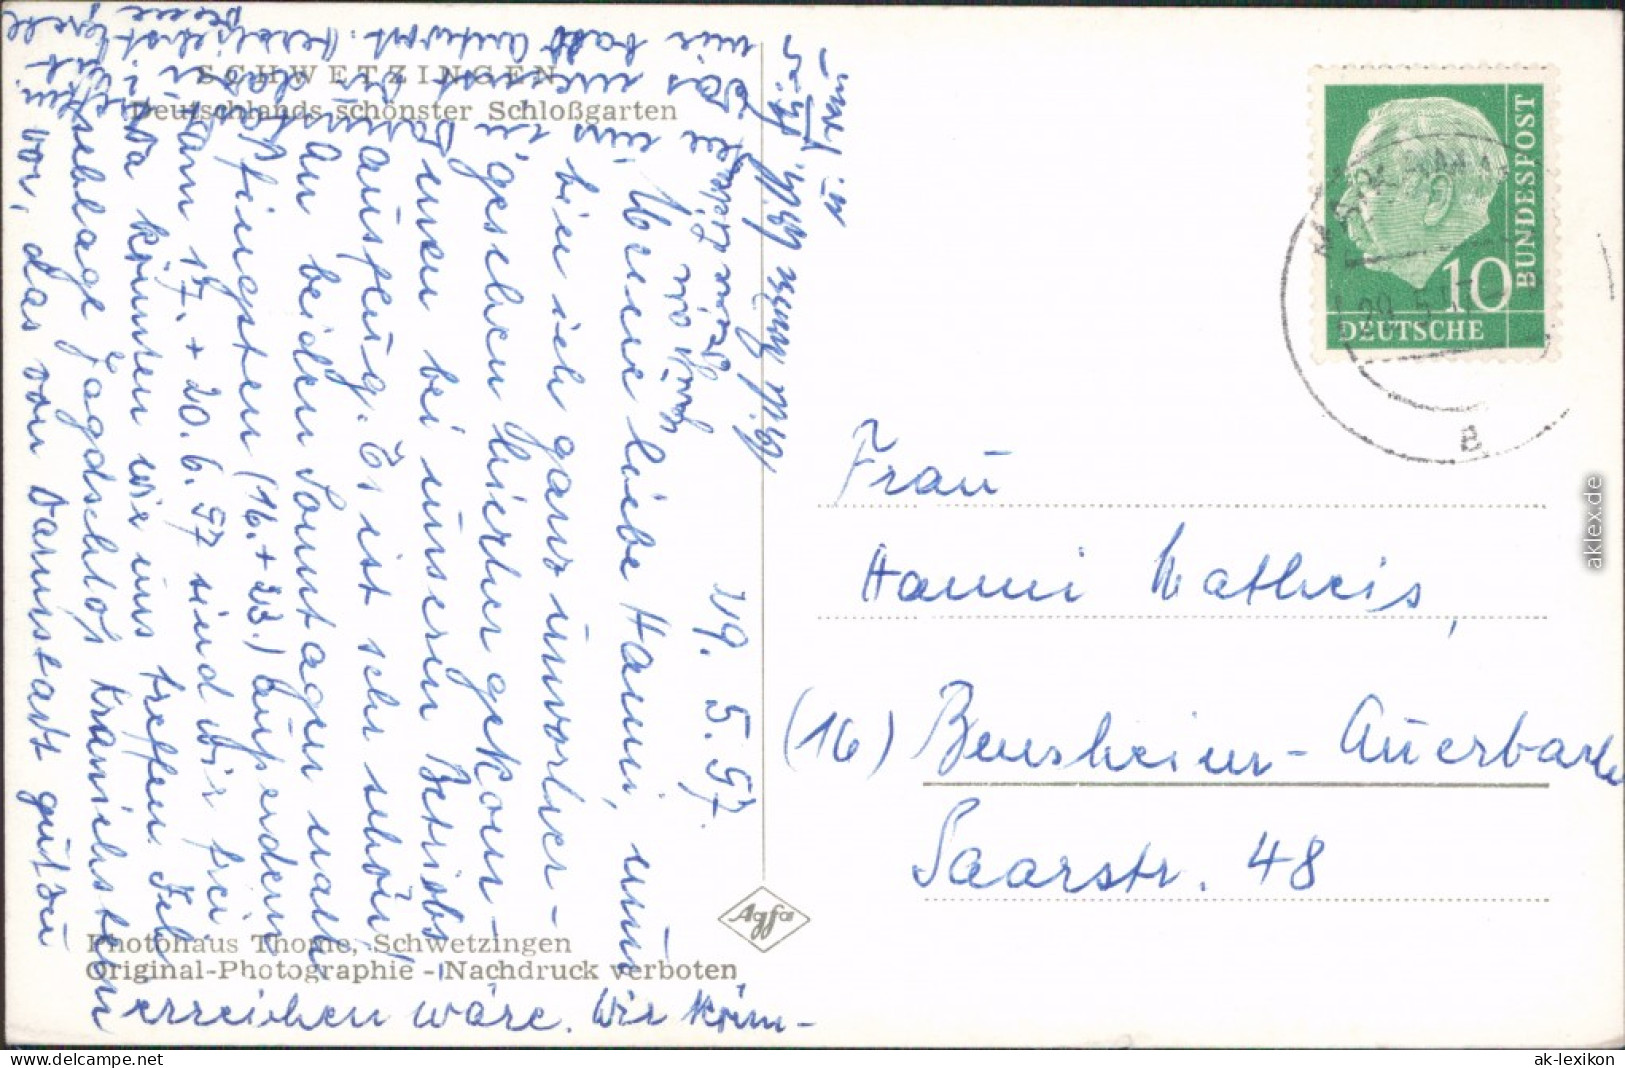 SCHWETZINGEN
Deutschlands schönster Schloßgarten
29. 5. 57.
Meine liebe Hanni, nun
bin ich ganz unvorher-
gesehen hierher gekom-
men bei unserem Betriebs-
ausflug. Es ist sehr schön!
An beiden Sonntagen nach
Pfingsten (16. + 23.) außerdem
am 17. + 20. 6. 57 sind wir frei.
Da könnten wir uns treffen. Ich
schlage Jagdschloß Kranichstein
vor, das von Darmstadt gut zu
erreichen wäre. Wir könn-
Photohaus Thome, Schwetzingen
Original-Photographie - Nachdruck verboten
Agfa
DEUTSCHE
BUNDESPOST
10
29. 5. 57
B
Frau
Hanni Matheis,
(16) Bensheim-Auerbach
Saarstr. 48
aklex.de
ak-lexikon
www.delcampe.net